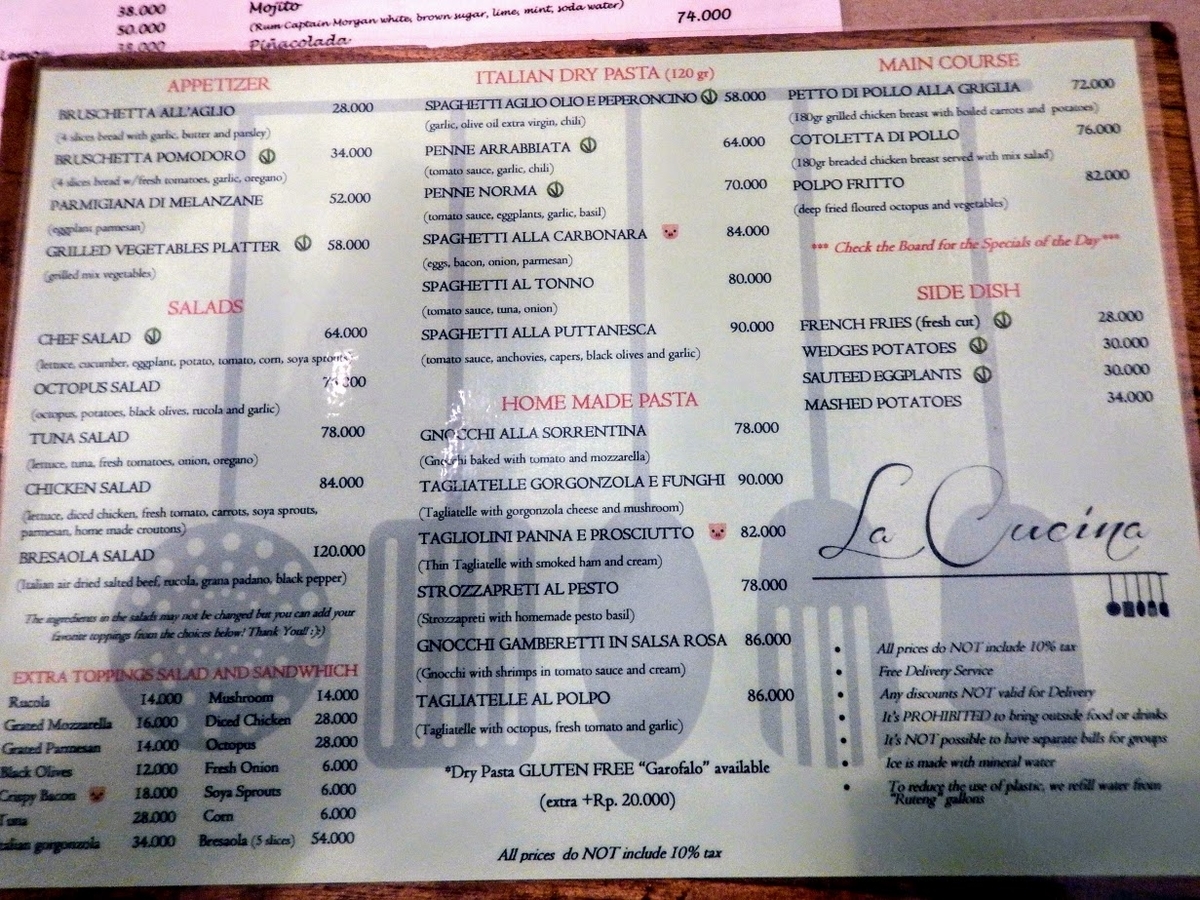 38.000 Mojito
50.000 (Rum Captain Morgan white, brown sugar, lime, mint, soda water) 74.000
38.000 Piñacolada
APPETIZER
BRUSCHETTA ALL'AGLIO 28.000
(4 slices bread with garlic, butter and parsley)
BRUSCHETTA POMODORO 34.000
(4 slices bread w/fresh tomatoes, garlic, oregano)
PARMIGIANA DI MELANZANE 52.000
(eggplant parmesan)
GRILLED VEGETABLES PLATTER 58.000
(grilled mix vegetables)
SALADS
CHEF SALAD 64.000
(lettuce, cucumber, eggplant, potato, tomato, corn, soya sprouts)
OCTOPUS SALAD
(octopus, potatoes, black olives, rucola and garlic)
TUNA SALAD 78.000
(lettuce, tuna, fresh tomatoes, onion, oregano)
CHICKEN SALAD 84.000
(lettuce, diced chicken, fresh tomato, carrots, soya sprouts,
parmesan, home made croutons)
BRESAOLA SALAD 120.000
(Italian air dried salted beef, rucola, grana padano, black pepper)
The ingredients in the salads may not be changed but you can add your
favorite toppings from the choices below! Thank You!! :):)
EXTRA TOPPINGS SALAD AND SANDWHICH
Rucola 14.000 Mushroom 14.000
Grated Mozzarella 16.000 Diced Chicken 28.000
Grated Parmesan 14.000 Octopus 28.000
Black Olives 12.000 Fresh Onion 6.000
Crispy Bacon 18.000 Soya Sprouts 6.000
Tuna 28.000 Corn 6.000
Italian gorgonzola 34.000 Bresaola (5 slices) 54.000
ITALIAN DRY PASTA (120 gr)
SPAGHETTI AGLIO OLIO E PEPERONCINO 58.000
(garlic, olive oil extra virgin, chili)
PENNE ARRABBIATA 64.000
(tomato sauce, garlic, chili)
PENNE NORMA 70.000
(tomato sauce, eggplants, garlic, basil)
SPAGHETTI ALLA CARBONARA 84.000
(eggs, bacon, onion, parmesan)
SPAGHETTI AL TONNO 80.000
(tomato sauce, tuna, onion)
SPAGHETTI ALLA PUTTANESCA 90.000
(tomato sauce, anchovies, capers, black olives and garlic)
HOME MADE PASTA
GNOCCHI ALLA SORRENTINA 78.000
(Gnocchi baked with tomato and mozzarella)
TAGLIATELLE GORGONZOLA E FUNGHI 90.000
(Tagliatelle with gorgonzola cheese and mushroom)
TAGLIOLINI PANNA E PROSCIUTTO 82.000
(Thin Tagliatelle with smoked ham and cream)
STROZZAPRETI AL PESTO 78.000
(Strozzapreti with homemade pesto basil)
GNOCCHI GAMBERETTI IN SALSA ROSA 86.000
(Gnocchi with shrimps in tomato sauce and cream)
TAGLIATELLE AL POLPO 86.000
(Tagliatelle with octopus, fresh tomato and garlic)
*Dry Pasta GLUTEN FREE "Garofalo" available
(extra +Rp. 20.000)
All prices do NOT include 10% tax
MAIN COURSE
PETTO DI POLLO ALLA GRIGLIA 72.000
(180gr grilled chicken breast with boiled carrots and potatoes)
COTOLETTA DI POLLO 76.000
(180gr breaded chicken breast served with mix salad)
POLPO FRITTO 82.000
(deep fried floured octopus and vegetables)
*** Check the Board for the Specials of the Day***
SIDE DISH
FRENCH FRIES (fresh cut) 28.000
WEDGES POTATOES 30.000
SAUTEED EGGPLANTS 30.000
MASHED POTATOES 34.000
La Cucina
• All prices do NOT include 10% tax
• Free Delivery Service
• Any discounts NOT valid for Delivery
• It's PROHIBITED to bring outside food or drinks
• It's NOT possible to have separate bills for groups
• Ice is made with mineral water
• To reduce the use of plastic, we refill water from
"Ruteng" gallons